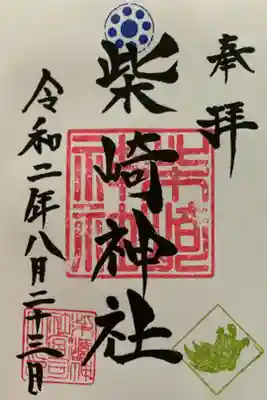 奉拝
柴崎神社
令和二年八月二十三日